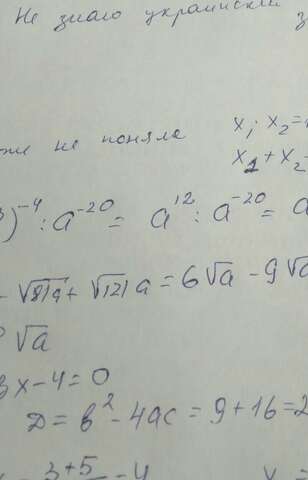 Не знаю украинский з
же не поняла x₁ · x₂ =
x₁ + x₂ =
)⁻⁴ : a⁻²⁰ = a¹² : a⁻²⁰ = a
- √81a + √121a = 6√a - 9√a
√a
3x - 4 = 0
D = b² - 4ac = 9 + 16 = 2
3 + 5 4